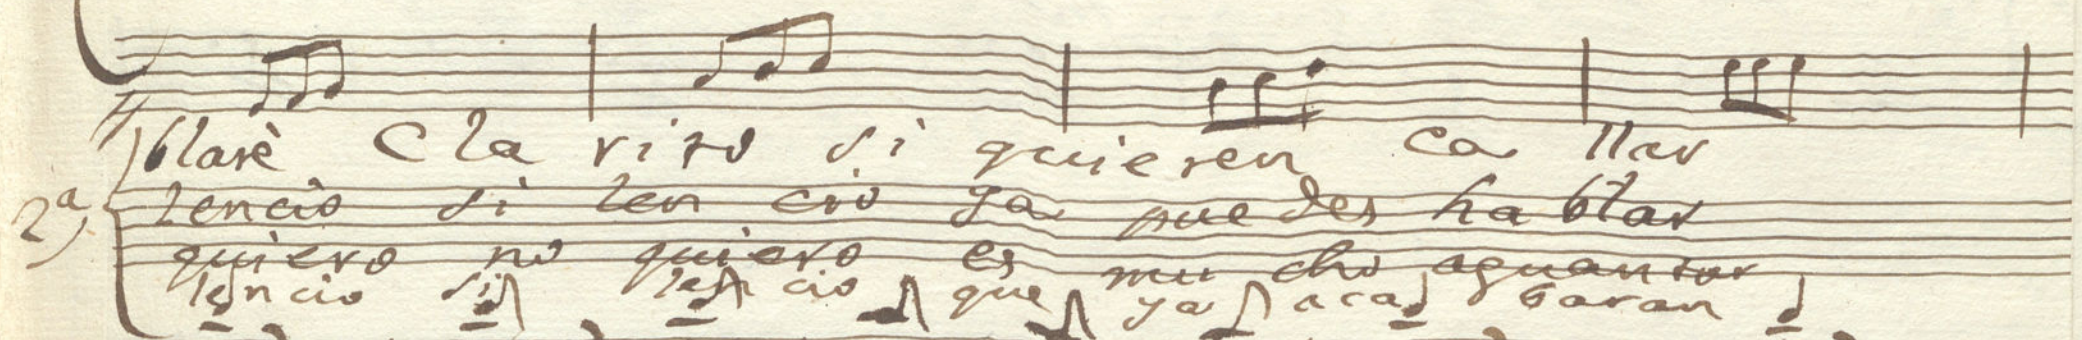 blarè Cla rito si quieren ca llar
2ª lencio si len cio ya puedes ha blar
quiero no quiero es mu cho aguantar
lencio si len cio que ya aca baran